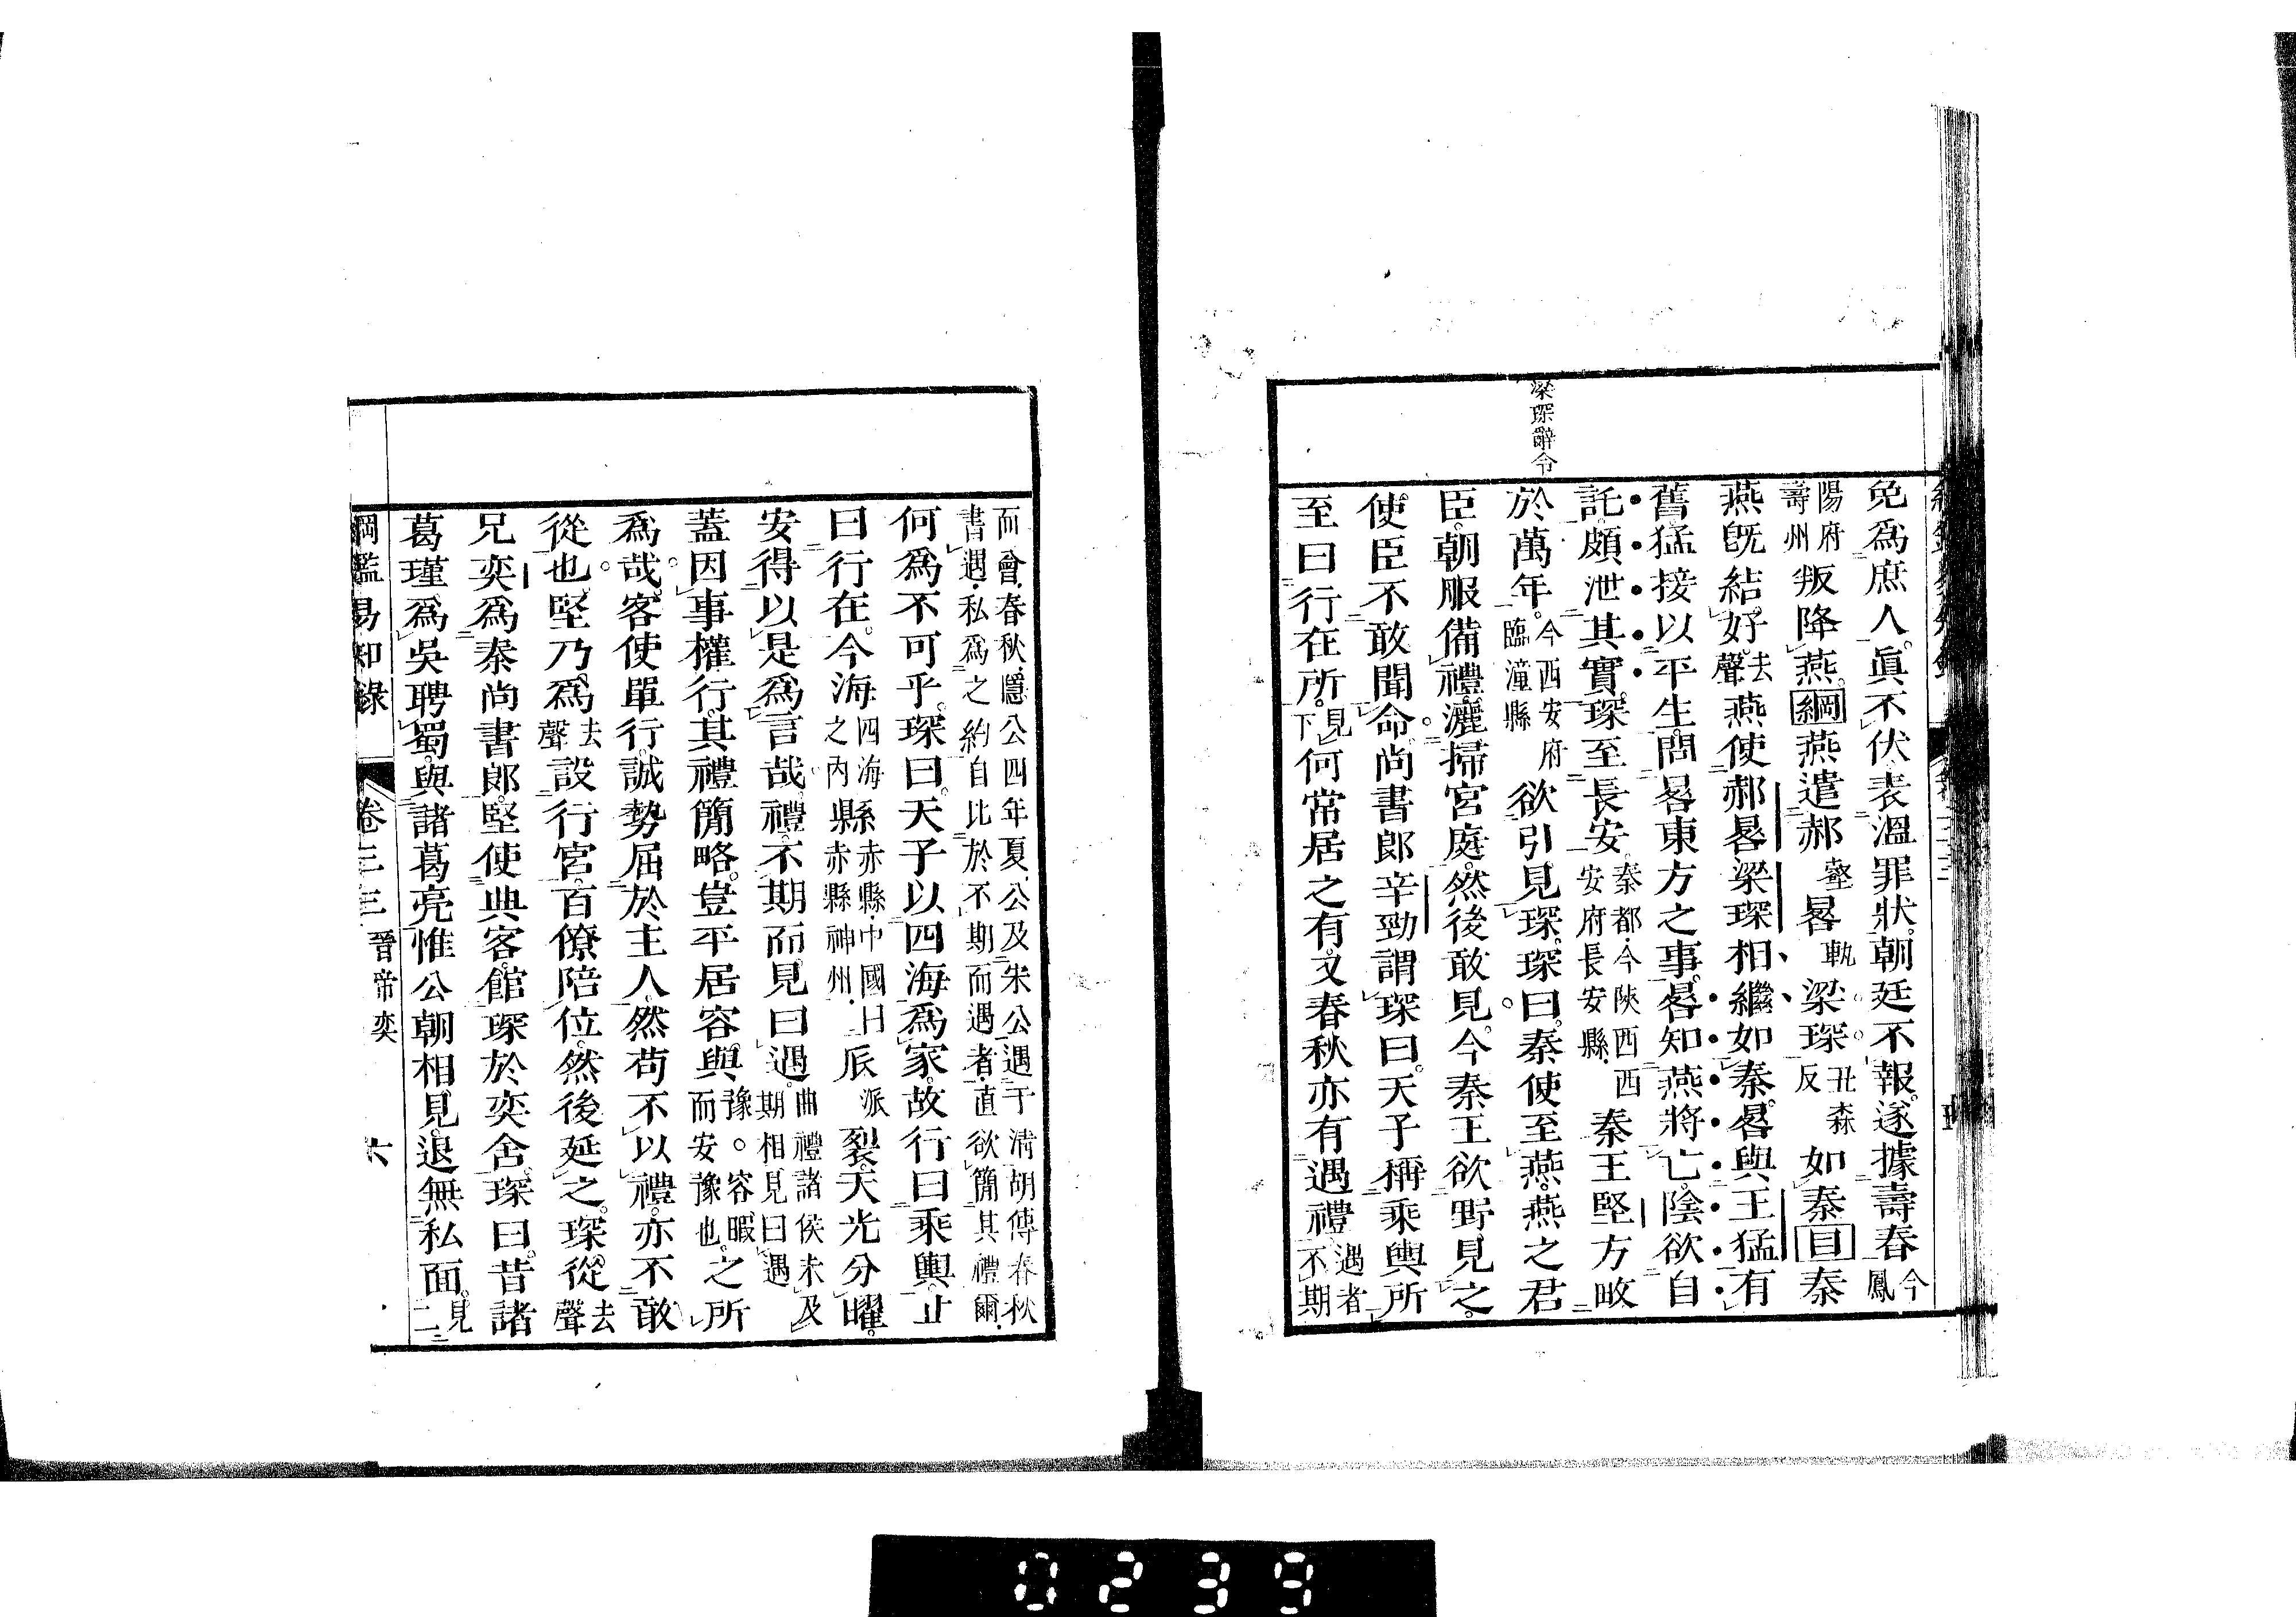 梁琛辭令
免爲庶人。眞不伏。表溫罪狀。朝廷不報。遂據壽春今鳳
陽府壽州叛降燕。綱燕遣郝壑晷軌梁琛丑森反如秦目秦
燕旣結好去聲燕使郝晷梁琛相繼如秦。晷與王猛有
舊。猛接以平生。問晷東方之事。晷知燕將亡。陰欲自
託。頗泄其實。琛至長安。秦都今陝西西安府長安縣秦王堅方畋
於萬年。今西安府臨潼縣欲引見琛。琛曰。秦使至燕。燕之君
臣。朝服備禮。灑掃宮庭。然後敢見。今秦王欲野見之。
使臣不敢聞命。尚書郎辛勁謂琛曰。天子稱乘輿。所
至曰行在所。見下何常居之有。又春秋亦有遇禮。遇者不期
而會。春秋隱公四年夏公及朱公遇于淸胡傳春秋書遇私爲之約自比於不期而遇者直欲簡其禮爾
何爲不可乎。琛曰。天子以四海爲家。故行曰乘輿。止
曰行在。今海四海之內縣縣赤縣中國曰赤縣神州𠂢派裂。天光分曜。
安得以是爲言哉。禮。不期而見曰遇。曲禮諸侯未及期相見曰遇
蓋因事權行。其禮簡略。豈平居容與豫。容暇而安豫也之所
爲哉。客使單行。誠勢屈於主人。然苟不以禮。亦不敢
從也。堅乃爲去聲設行宮。百僚陪位。然後延之。琛從去聲
兄奕爲秦尚書郎。堅使典客。館琛於奕舍。琛曰。昔諸
葛瑾爲吳聘蜀。與諸葛亮惟公朝相見。退無私面。見二
綱鑑易知錄 卷三三 晉帝奕 六
0239